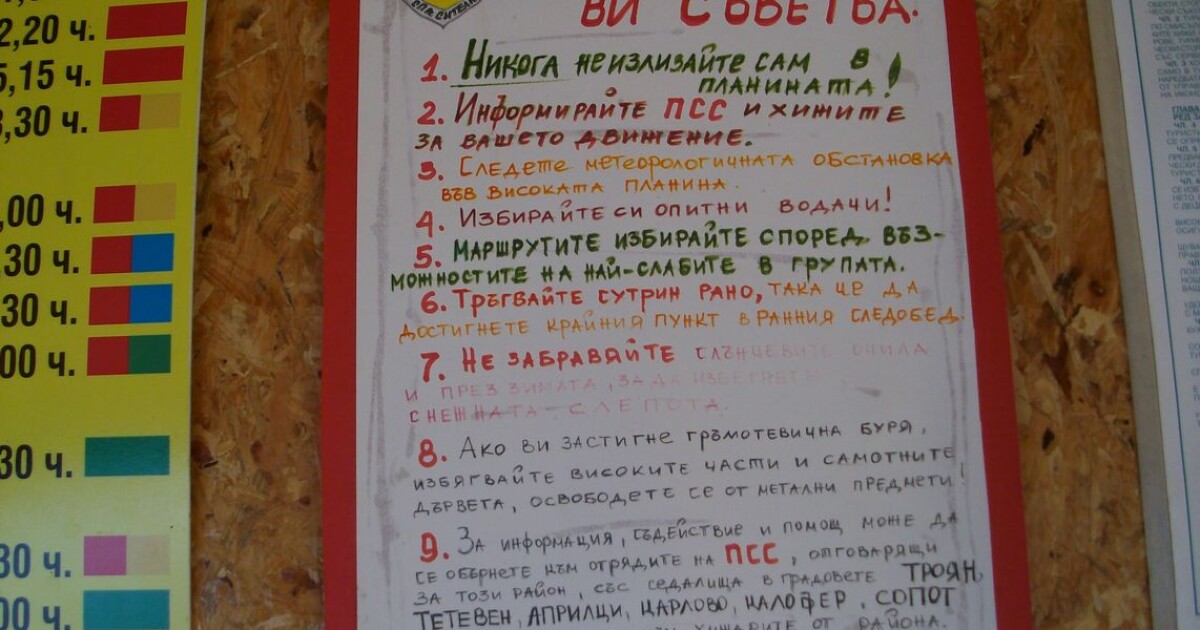 2,20 ч.
5,15 ч.
3,30 ч.
,00 ч.
30 ч.
30 ч.
00 ч.
30 ч.
30 ч.
00 ч.
ВИ СЪВЕТВА.
1. НИКОГА НЕ ИЗЛИЗАЙТЕ САМ В
ПЛАНИНАТА!
2. ИНФОРМИРАЙТЕ ПСС И ХИЖИТЕ
ЗА ВАШЕТО ДВИЖЕНИЕ.
3. СЛЕДЕТЕ МЕТЕОРОЛОГИЧНАТА ОБСТАНОВКА
ВЪВ ВИСОКАТА ПЛАНИНА.
4. ИЗБИРАЙТЕ СИ ОПИТНИ ВОДАЧИ!
5. МАРШРУТИТЕ ИЗБИРАЙТЕ СПОРЕД ВЪЗ-
МОЖНОСТИТЕ НА НАЙ-СЛАБИТЕ В ГРУПАТА.
6. ТРЪГВАЙТЕ СУТРИН РАНО, ТАКА ЧЕ ДА
ДОСТИГНЕТЕ КРАЙНИЯ ПУНКТ В РАННИЯ СЛЕДОБЕД.
7. НЕ ЗАБРАВЯЙТЕ СЛЪНЧЕВИТЕ ОЧИЛА
И ПРЕЗ ЗИМАТА, ЗА ДА ИЗБЕГНЕТЕ
СНЕЖНАТА СЛЕПОТА.
8. АКО ВИ ЗАСТИГНЕ ГРЪМОТЕВИЧНА БУРЯ,
ИЗБЯГВАЙТЕ ВИСОКИТЕ ЧАСТИ И САМОТНИТЕ
ДЪРВЕТА, ОСВОБОДЕТЕ СЕ ОТ МЕТАЛНИ ПРЕДМЕТИ!
9. ЗА ИНФОРМАЦИЯ, СЪДЕЙСТВИЕ И ПОМОЩ МОЖЕ ДА
СЕ ОБЪРНЕТЕ КЪМ ОТРЯДИТЕ НА ПСС, ОТГОВАРЯЩИ
ЗА ТОЗИ РАЙОН, СЪС СЕДАЛИЩА В ГРАДОВЕТЕ ТРОЯН,
ТЕТЕВЕН, АПРИЛЦИ, КАРЛОВО, КАЛОФЕР, СОПОТ
ХИЖАРИТЕ ОТ РАЙОНА.